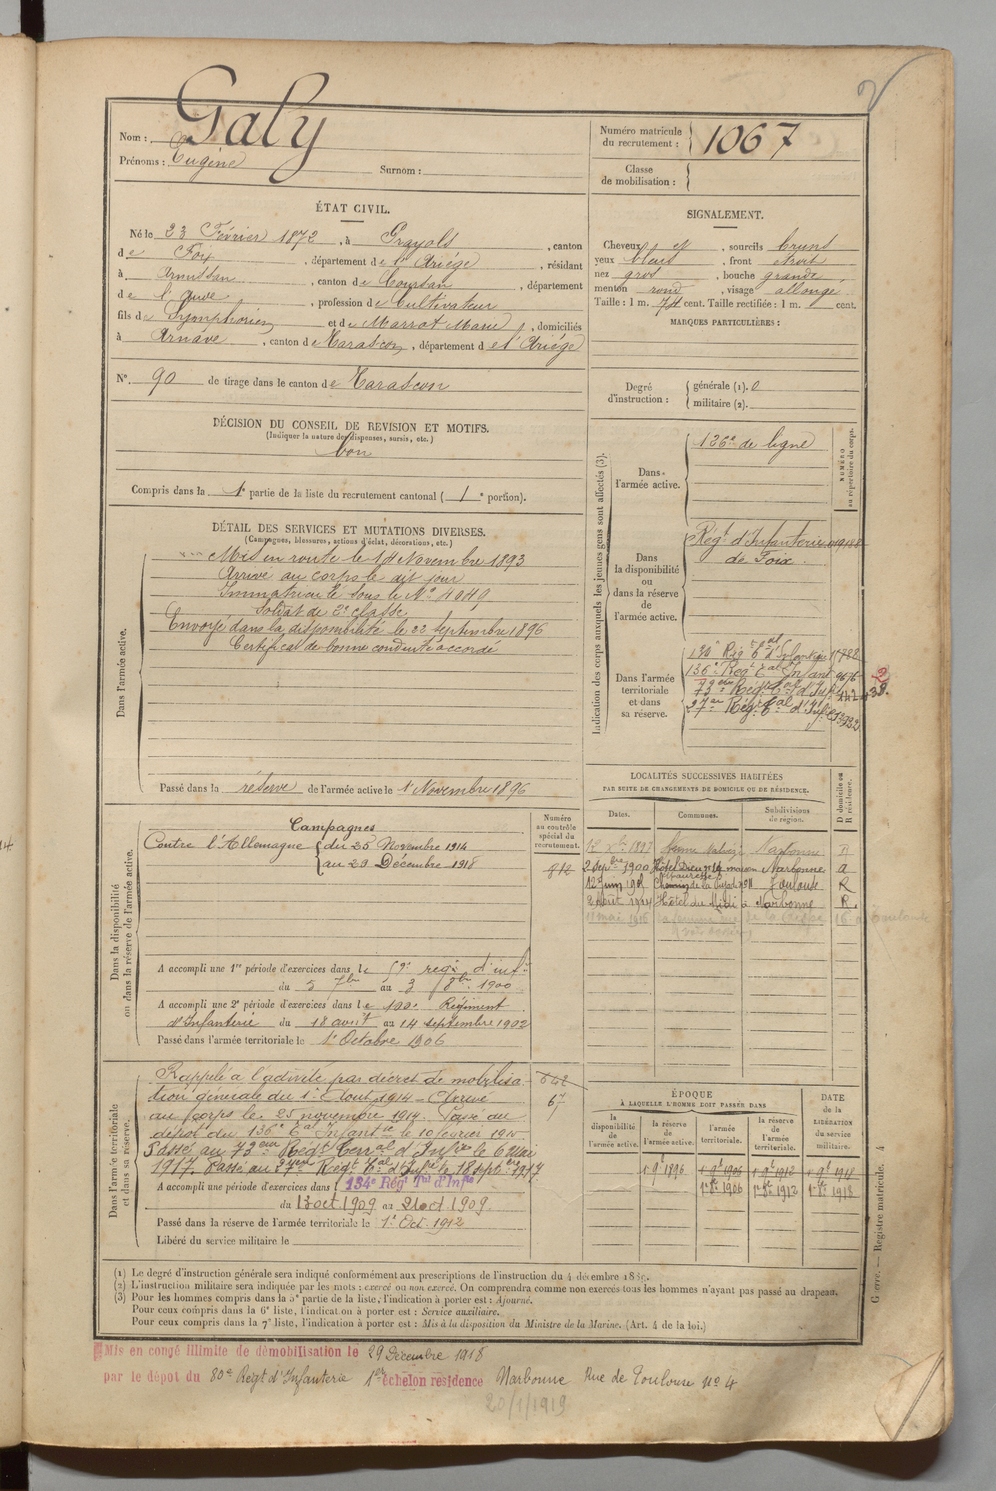 Nom : Galy
Prénoms : Eugène Surnom :
Numéro matricule du recrutement : 1067
Classe de mobilisation :
ÉTAT CIVIL.
Né le 23 Février 1872, à Prayols, canton
de Foix, département de l'Ariège, résidant
à Armissan, canton de Coursan, département
de l'Aude, profession de Cultivateur
fils de Symphorien et de Marrot Marie, domiciliés
à Arnave, canton de Tarascon, département de l'Ariège
N° 90 de tirage dans le canton de Tarascon
SIGNALEMENT.
Cheveux et, sourcils bruns
yeux bleus, front étroit
nez gros, bouche grande
menton rond, visage allongé
Taille : 1 m. 74 cent. Taille rectifiée : 1 m. cent.
MARQUES PARTICULIÈRES :
Degré d'instruction : générale (1). 0
militaire (2).
DÉCISION DU CONSEIL DE REVISION ET MOTIFS.
(Indiquer la nature des dispenses, sursis, etc.)
bon
Compris dans la 1e partie de la liste du recrutement cantonal (1e portion).
DÉTAIL DES SERVICES ET MUTATIONS DIVERSES.
(Campagnes, blessures, actions d'éclat, décorations, etc.)
Dans l'armée active.
Mis en route le 14 Novembre 1893
Arrivé au corps le dit jour
Immatriculé sous le N° 4049
Soldat de 2e classe
Envoyé dans la disponibilité le 22 Septembre 1896
Certificat de bonne conduite accordé
Passé dans la réserve de l'armée active le 1 Novembre 1896
Indication des corps auxquels les jeunes gens sont affectés (3).
NUMÉRO au répertoire du corps.
Dans l'armée active.
126e de ligne
Dans la disponibilité ou dans la réserve de l'armée active.
Régt d'Infanterie
de Foix
Dans l'armée territoriale et dans sa réserve.
134e Régt Tal d'Infanterie
136e Regt Tal Infant
73eme Régt Tal d'Inf
27me Rég. Tal d'Inf.
LOCALITÉS SUCCESSIVES HABITÉES
PAR SUITE DE CHANGEMENTS DE DOMICILE OU DE RÉSIDENCE.
Dates. Communes. Subdivisions de région. D domicile ou R résidence.
Narbonne D
2 Sepbre 1900 Hôtel Dieu Narbonne
12 Juin Toulouse R
2 Août 1914 Hôtel du Midi à Narbonne R
Dans la disponibilité ou dans la réserve de l'armée active.
Numéro au contrôle spécial du recrutement.
912
Campagnes
Contre l'Allemagne du 25 Novembre 1914
au 29 Décembre 1918
A accompli une 1re période d'exercices dans le 59e regt d'inf
du 5 7bre au 3 8bre 1900
A accompli une 2e période d'exercices dans le 100e Régiment
d'Infanterie du 18 août au 14 septembre 1902
Passé dans l'armée territoriale le 1er Octobre 1906
Dans l'armée territoriale et dans sa réserve.
Rappelé à l'activité par décret de mobilisa
tion générale du 1er Août 1914 - Arrivé
au corps le 25 novembre 1914. Passé au
dépôt du 136e Tal Infantrie le 10 février 1915
Passé au 73eme Régt Terral d'Infie le 6 Mai
1917. Passé au 27eme Regt Tal d'Infie le 18 septbre 1917
642
67
A accompli une période d'exercices dans 134e Régt Tal d'Infie
du 13 oct. 1909 au 21 oct 1909.
Passé dans la réserve de l'armée territoriale le 1er Oct. 1912
Libéré du service militaire le
ÉPOQUE
À LAQUELLE L'HOMME DOIT PASSER DANS
la disponibilité de l'armée active. la réserve de l'armée active. l'armée territoriale. la réserve de l'armée territoriale. DATE de la LIBÉRATION du service militaire.
1 9e 1896 1 9e 1906 1 9e 1912 1 9e 1918
1er 8e 1906 1er 8e 1912 1er 8e 1918
(1) Le degré d'instruction générale sera indiqué conformément aux prescriptions de l'instruction du 4 décembre 1889.
(2) L'instruction militaire sera indiquée par les mots : exercé ou non exercé. On comprendra comme non exercés tous les hommes n'ayant pas passé au drapeau.
(3) Pour les hommes compris dans la 5e partie de la liste, l'indication à porter est : Ajourné.
Pour ceux compris dans la 6e liste, l'indication à porter est : Service auxiliaire.
Pour ceux compris dans la 7e liste, l'indication à porter est : Mis à la disposition du Ministre de la Marine. (Art. 4 de la loi.)
Guerre. — Registre matricule. 4
Mis en congé illimité de démobilisation le 29 Décembre 1918
par le dépot du 80e Régt d'Infanterie 1er échelon résidence Narbonne Rue de Toulouse n° 4
20/1/1919